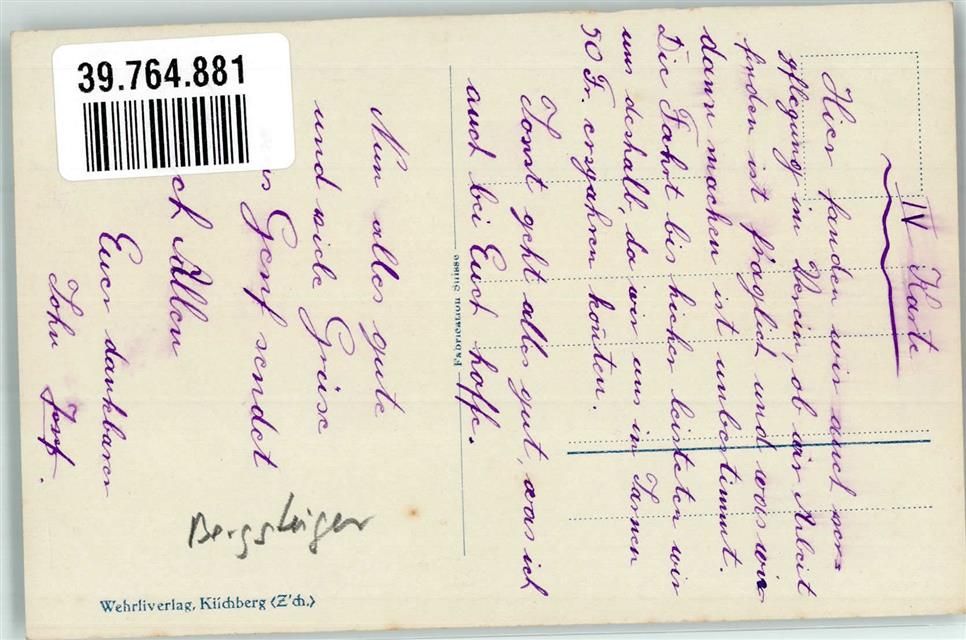 39.764.881
IV Karte
Hier fanden wir auch ver=
pflegung im Verein, ob wir Arbeit
finden ist fraglich und was wir
dann machen ist unbestimmt.
Die Fahrt bis hieher leisteten wir
uns deshalb, da wir uns in Sarnen
50 Fr. ersparen konten.
Sonst geht alles gut, was ich
auch bei Euch hoffe.
Nun alles gute
und viele Grüsse
Genf sendet
Allen
Euer dankbarer
Sohn Josef.
Bergsteiger
Fabrication Suisse
Wehrliverlag, Kilchberg (Z'ch.)